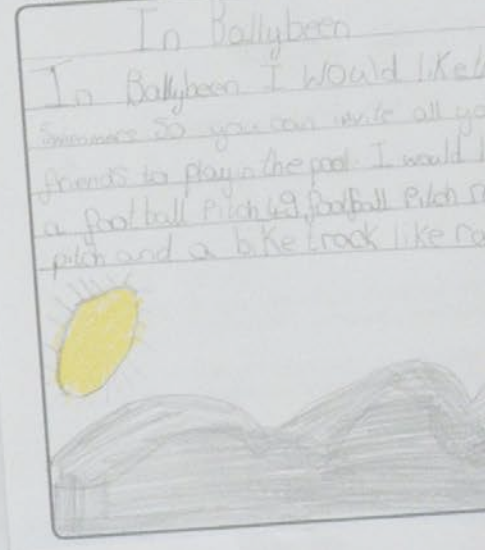 In Ballybeen
In Ballybeen I would like
so you can invite all yo
friends to play in the pool. I would l
a football pitch 4g football pitch
pitch and a bike track like